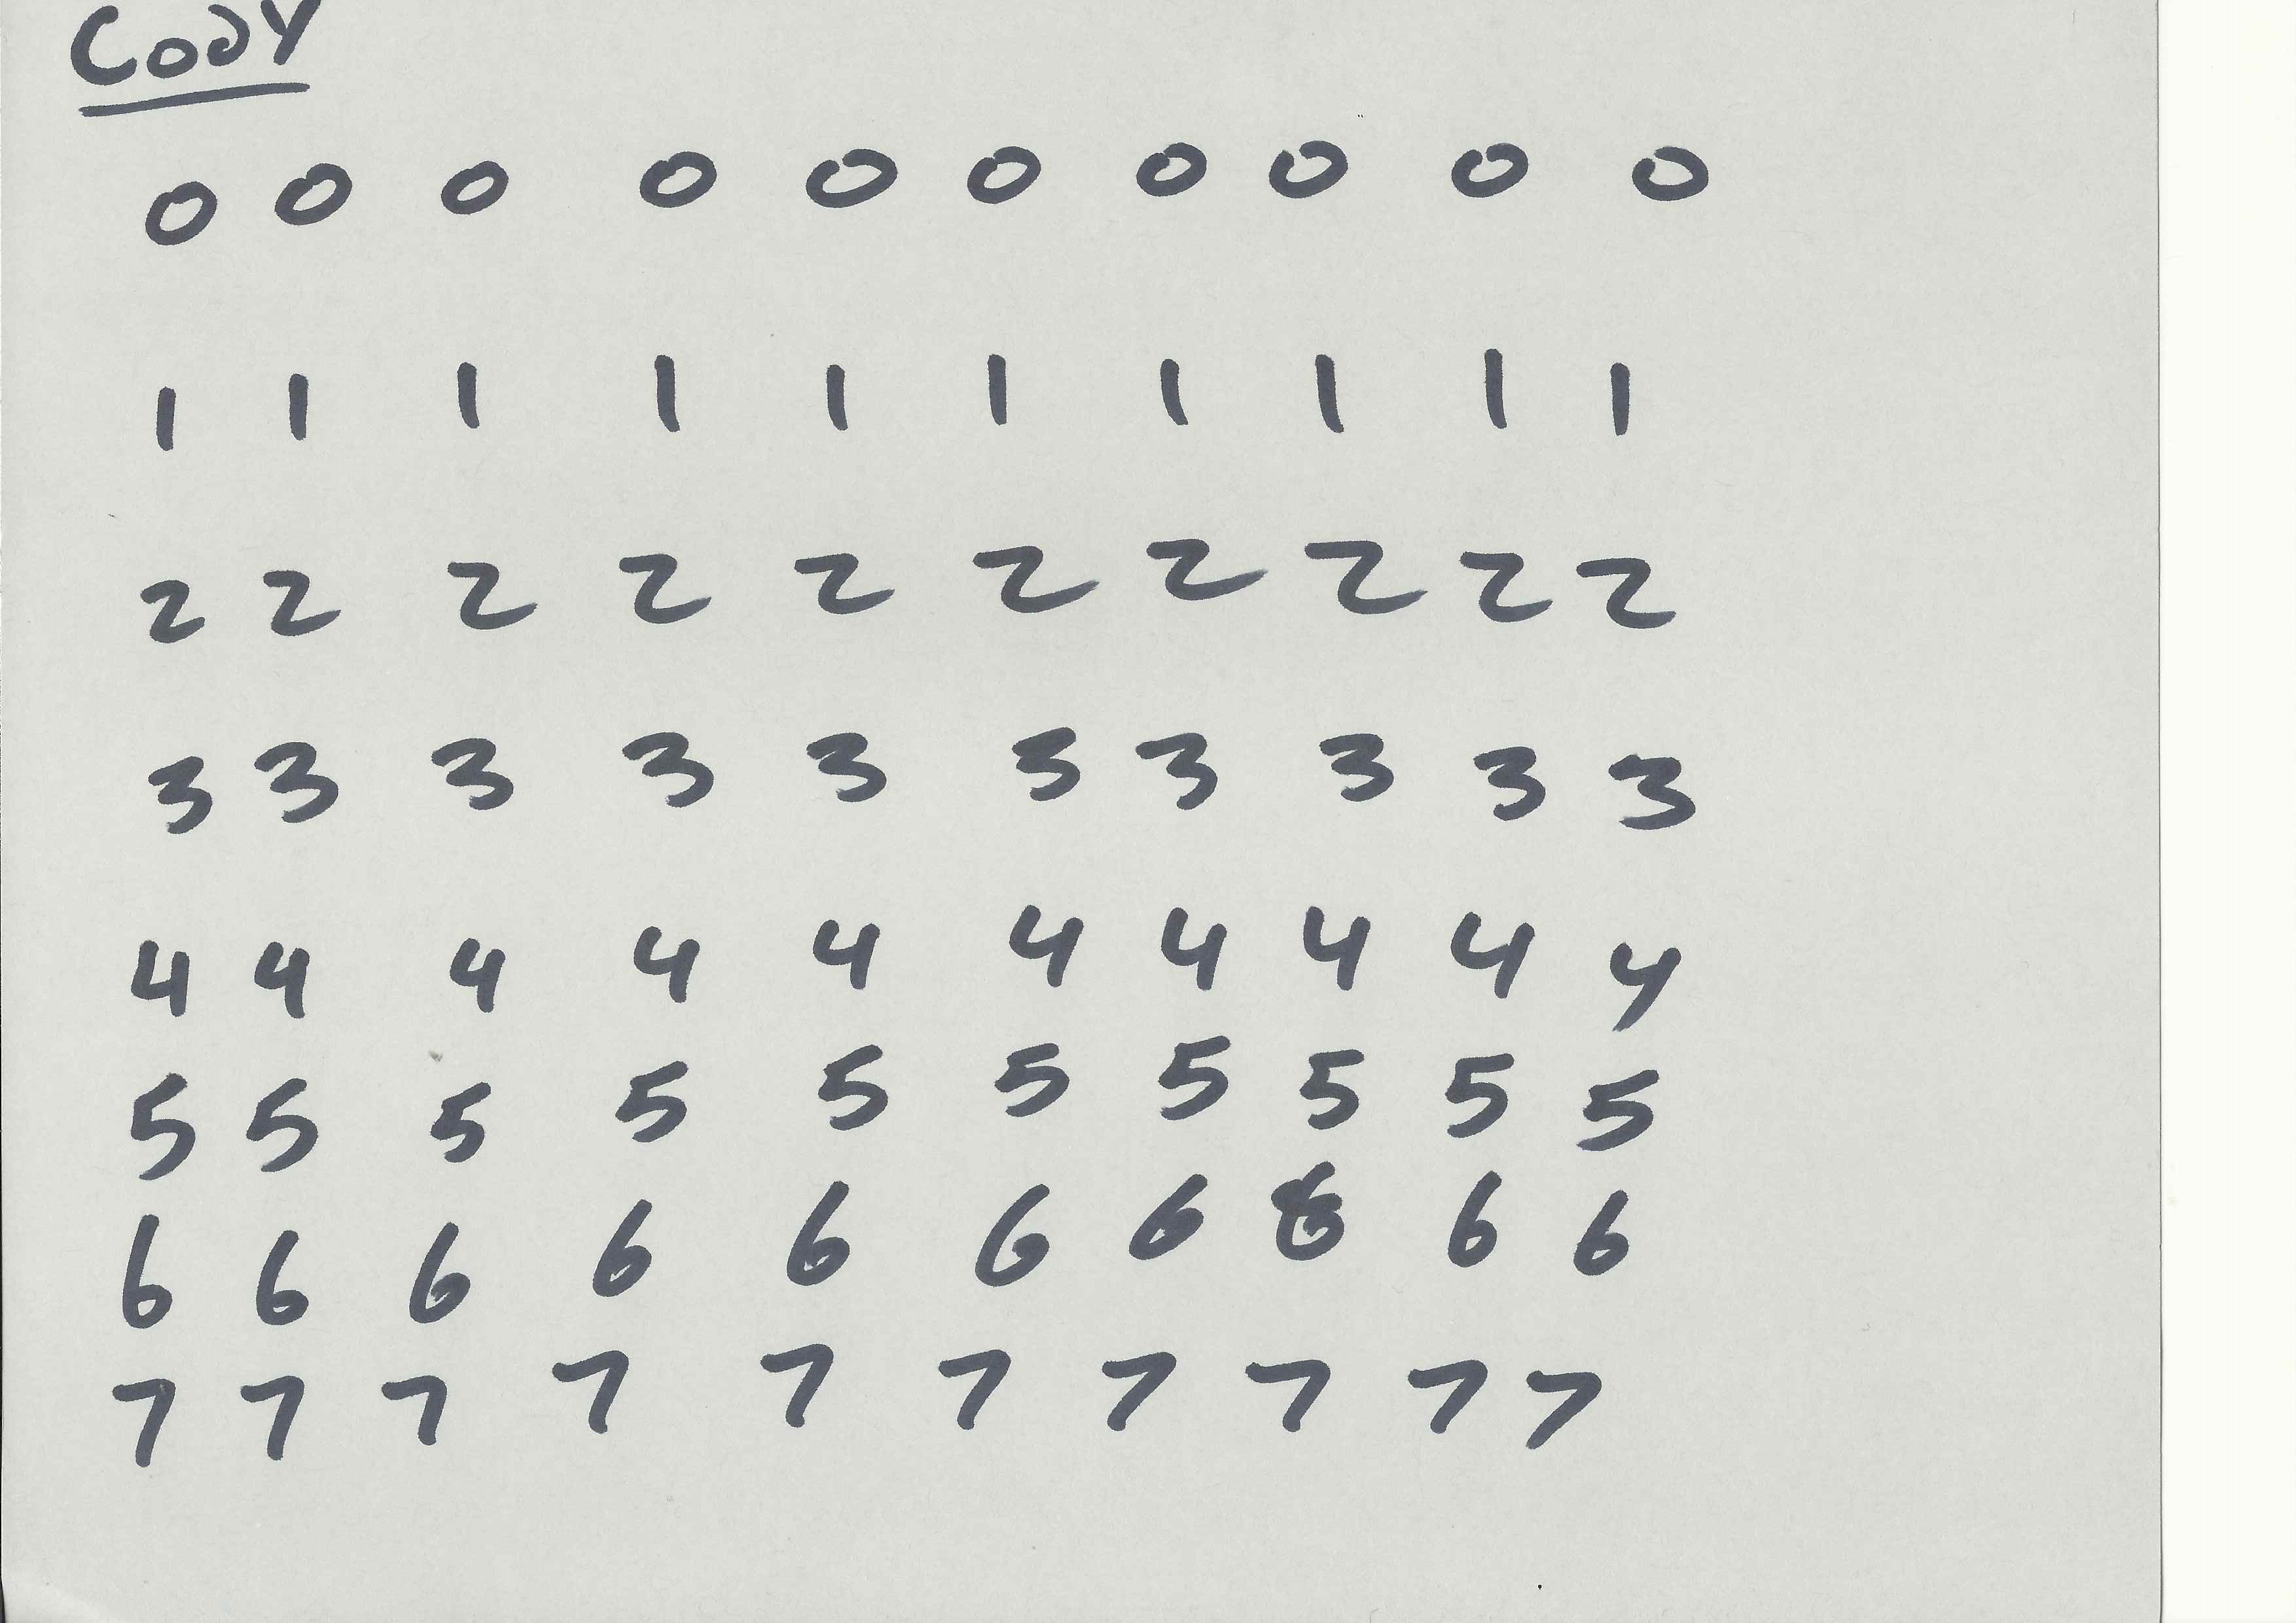 Cody
0 0 0 0 0 0 0 0 0 0
1 1 1 1 1 1 1 1 1 1
2 2 2 2 2 2 2 2 2 2
3 3 3 3 3 3 3 3 3 3
4 4 4 4 4 4 4 4 4 4
5 5 5 5 5 5 5 5 5 5
6 6 6 6 6 6 6 6 6 6
7 7 7 7 7 7 7 7 7 7